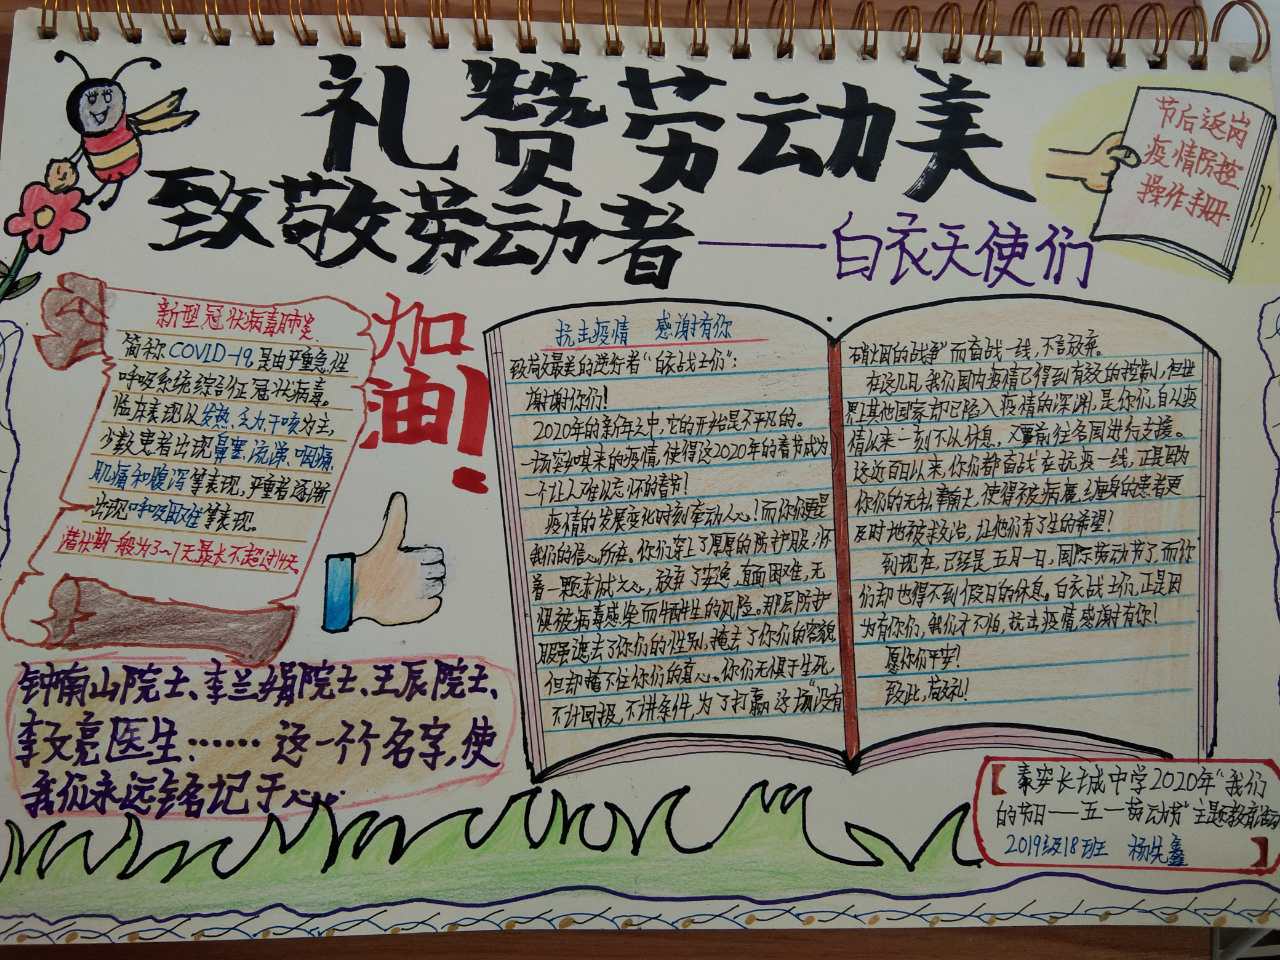 礼赞劳动美
致敬劳动者——白衣天使们
节后返岗
疫情防控
操作手册
新型冠状病毒肺炎
简称COVID-19,是由严重急性
呼吸系统综合征冠状病毒。
临床表现以发热,乏力,干咳为主,
少数患者出现鼻塞,流涕,咽痛,
肌痛和腹泻等表现,严重者逐渐
出现呼吸困难等表现。
潜伏期一般为3~7天最长不超过14天。
加
油!
抗击疫情 感谢有你
致敬最美的逆行者“白衣战士们”:
谢谢你们!
2020年的新年之中,它的开始是不平凡的。
一场突如其来的疫情,使得这2020年的春节成为
一个让人难以忘怀的春节!
疫情的发展变化时刻牵动人心!而你们便是
我们的信心所在。你们穿上了厚厚的防护服,怀
着一颗赤诚之心,放弃了安逸,直面困难,无
惧被病毒感染而牺牲的风险。那层防护
服虽遮去了你们的性别,掩去了你们的容貌
但却掩不住你们的真心。你们无惧于生死
不计回报,不讲条件,为了打赢这场“没有
硝烟的战争”而奋战一线,不言放弃。
在这几日,我们国内疫情已得到有效的控制,但世
界其他国家却已陷入疫情的深渊,是你们,自从疫
情以来一刻不从休息,又要前往各国进行支援。
这近百日以来,你们都奋战在抗疫一线,正是因为
你们的无私奉献,使得被病魔缠身的患者更
及时地被救治,让他们有了生的希望!
到现在,已经是五月一日,国际劳动节了,而你
们却也得不到假日的休息。白衣战士们,正是因
为有你们,我们才不怕,抗击疫情,感谢有你!
愿你们平安!
致此,敬礼!
钟南山院士、李兰娟院士、王辰院士、
李文亮医生……这一个个名字,使
我们永远铭记于心。
【泰安长城中学2020年“我们
的节日——五一劳动节”主题教育活动
2019级18班 杨先鑫】